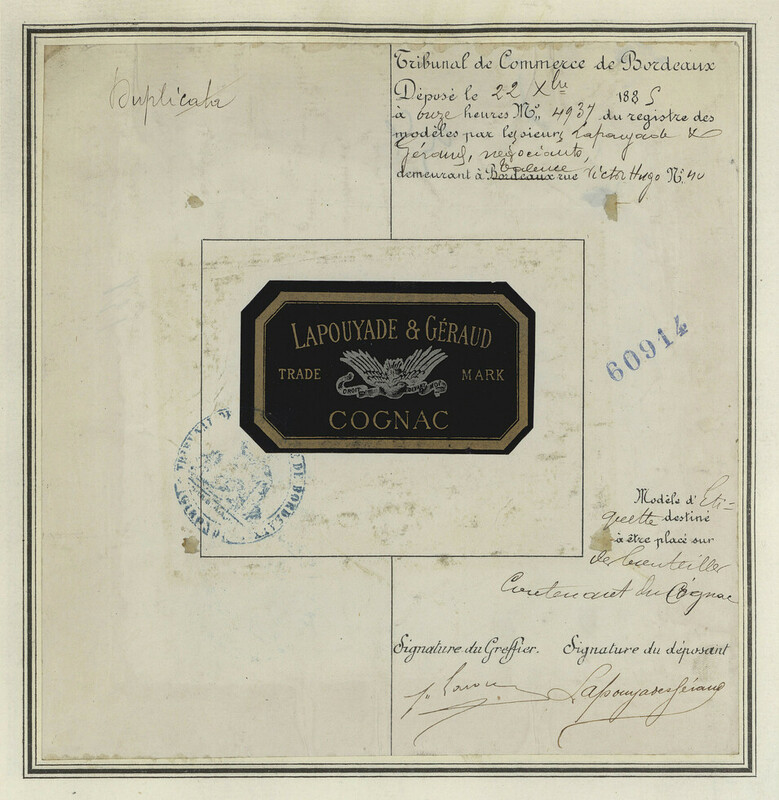 Duplicata
Tribunal de Commerce de Bordeaux
Déposé le 22 Xbre 1885
à onze heures Nº 4937 du registre des
modèles par les sieurs Lapouyade &
Géraud, négociants,
Valence
demeurant à Bordeaux rue Victor Hugo Nº 40
LAPOUYADE & GÉRAUD
TRADE MARK
DROIT
COGNAC
60914
TRIBUNAL DE
DE BORDEAUX
Modèle d'Eti-
quette destiné
à être placé sur
des bouteilles
contenant du Cognac
Signature du Greffier. Signature du déposant
Lapouyade & Géraud